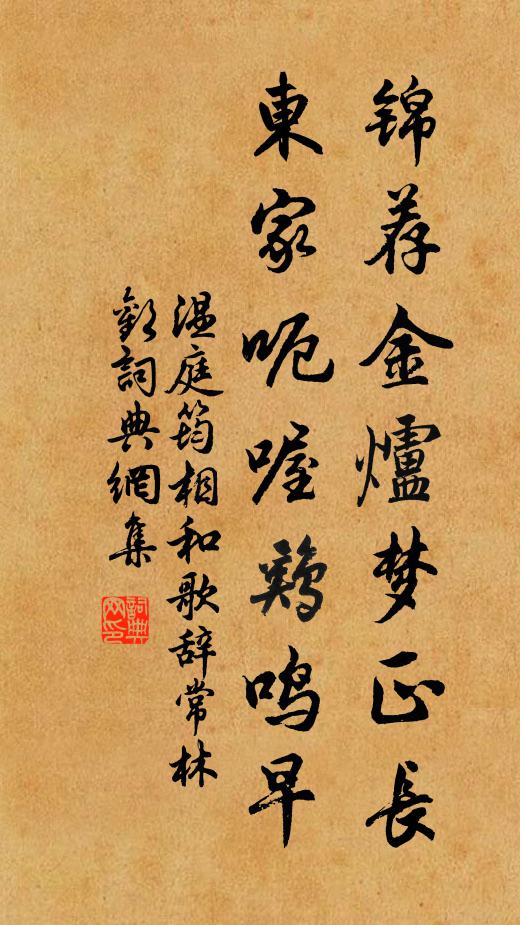 锦荐金爐梦正長
東家呃喔鷄鸣早
温庭筠相和歌辞常林
歡詞典網集
詞典
网印